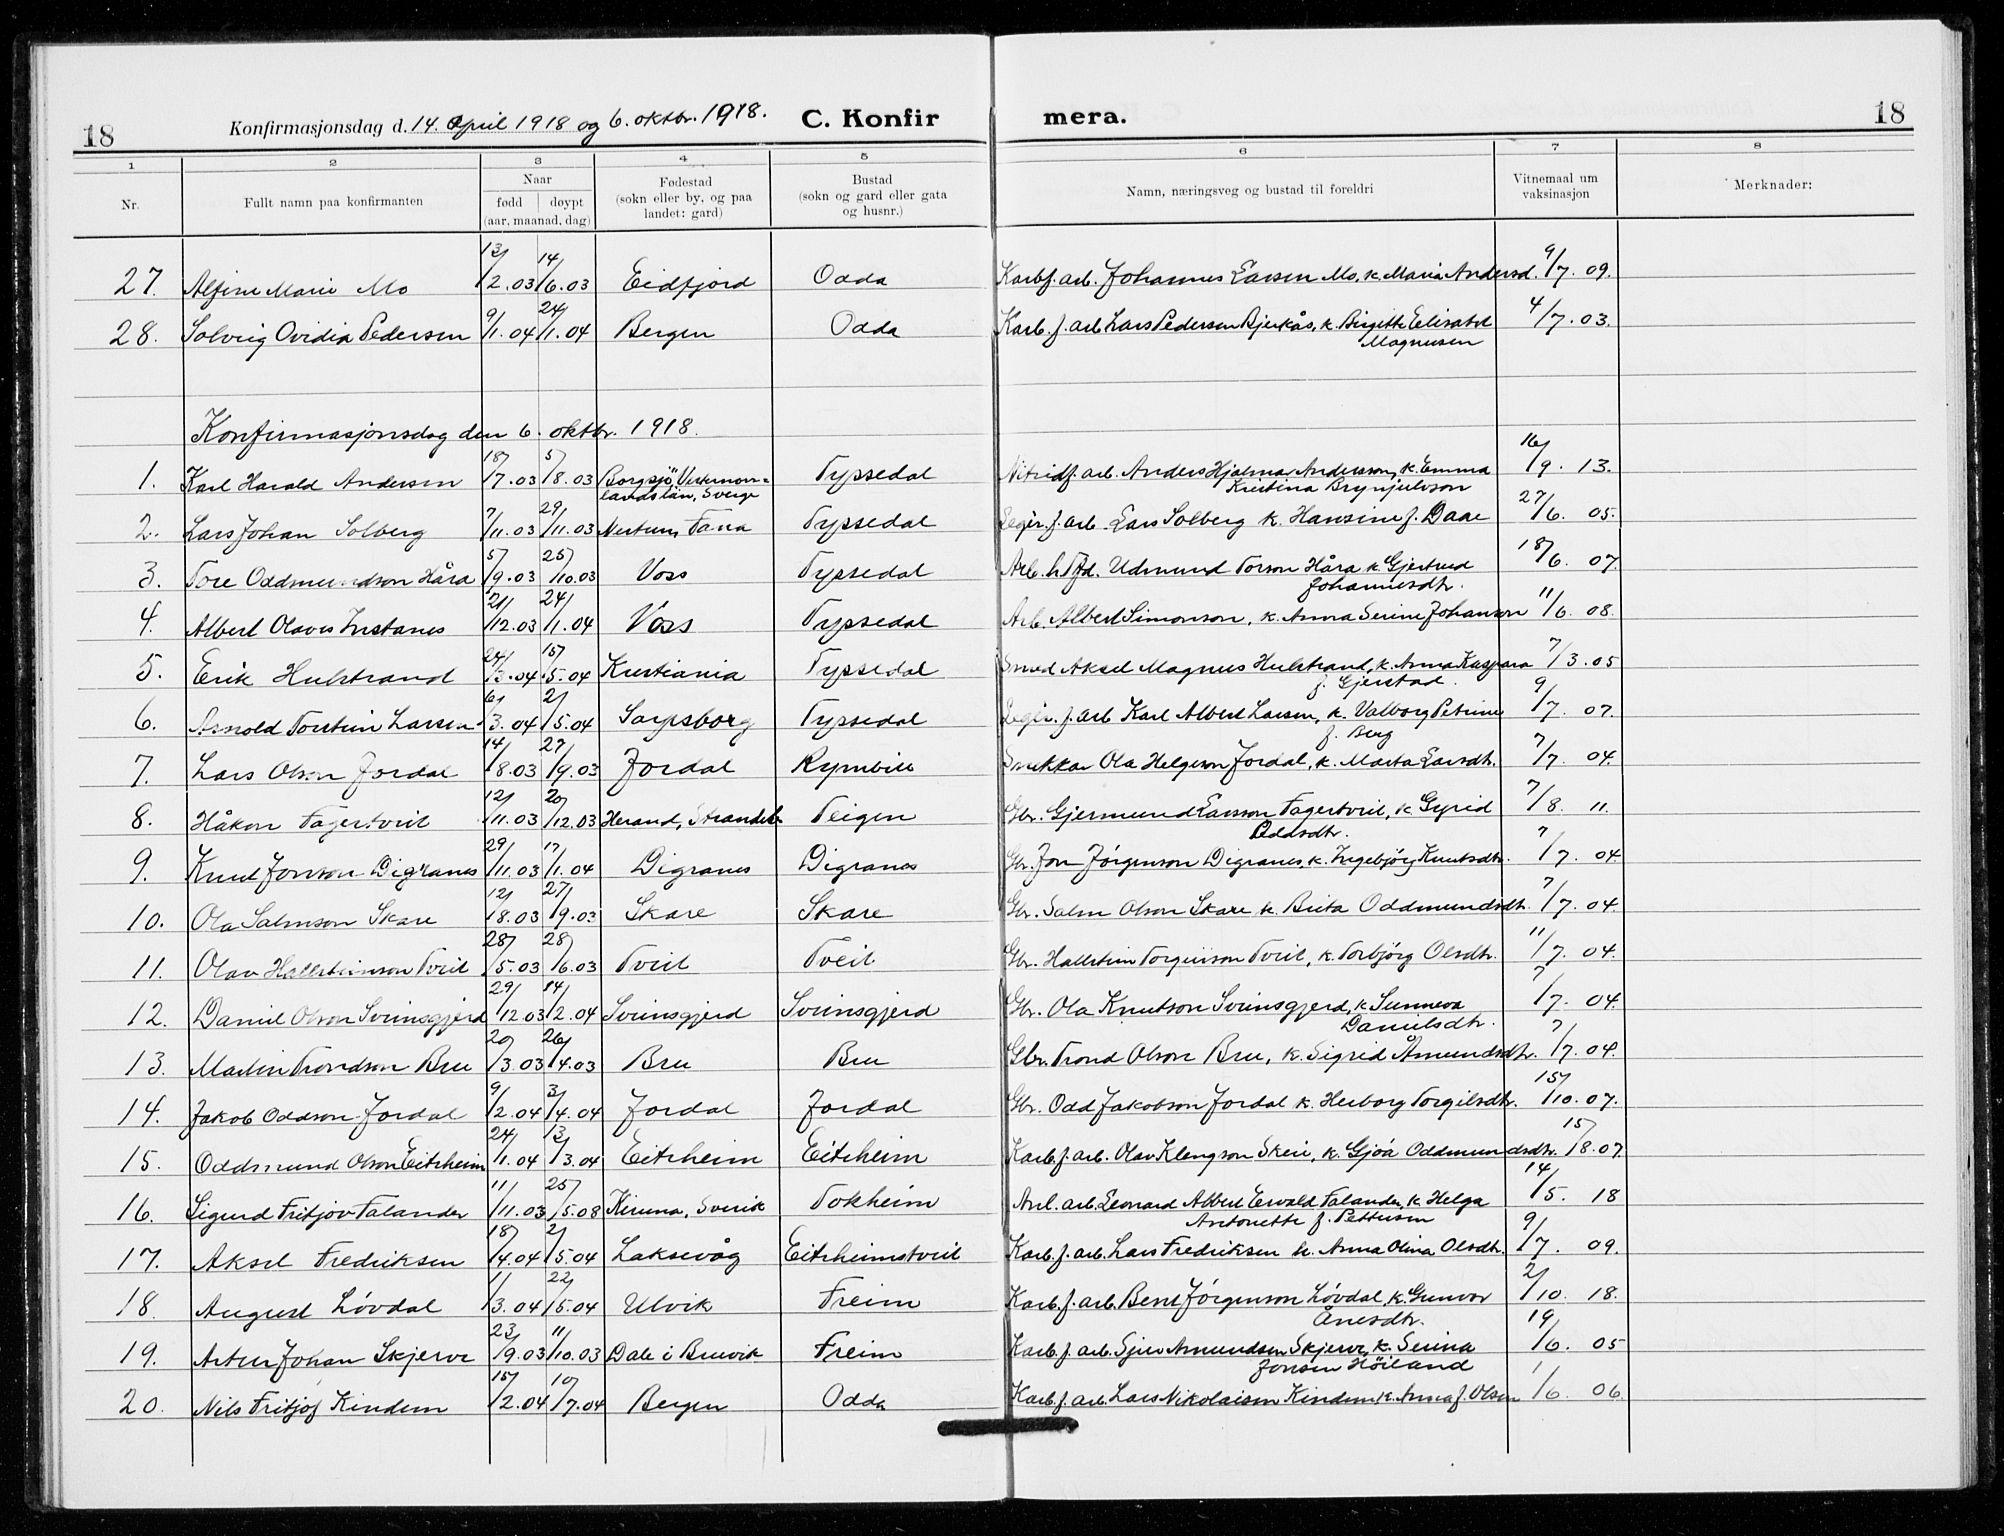 18 Konfirmasjonsdag d. 14. April 1918 og 6. oktbr. 1918. C. Konfir mera. 18
1 2 3 4 5 6 7 8
Nr. Fullt namn paa konfirmanten Naar født døypt (aar, maanad, dag) Fødestad (sokn eller by, og paa landet: gard) Bustad (sokn og gard eller gata og husnr.) Namn, næringsveg og bustad til foreldri Vitnemaal um vaksinasjon Merknader:
27. Alfine Marie Mo 13/2.03 14/6.03 Eidfjord Odda Karbf. arb. Johannes Larsen Mo, k. Maria Andersd. 9/7. 09.
28. Solveig Ovidia Pedersen 9/1.04 24/1.04 Bergen Odda Karb. f. arb. Lars Pedersen Bjerkås, k. Birgitte Elisabet 4/7. 03.
Magnusen
Konfirmasjonsdag den 6. oktbr. 1918.
1. Karl Harald Andersen 18/7.03 5/8.03 Borgsjö, Vesternorr= Tyssedal Nitridf. arb. Anders Hjalmar Andersson, k. Emma 16/9. 13.
landslän, Sverge Kristina Brynjulvson
2. Lars Johan Solberg 7/11.03 29/11.03 Nestun, Fana Tyssedal Leger. f. arb. Lars Solberg k. Hansine f. Daae 27/6. 05.
3. Tore Oddmundson Håra 5/9.03 25/10.03 Voss Tyssedal Arb. Udmund Torson Håra k. Gjertrud 18/6. 07.
Johannesdtr.
4. Albert Olaves Instanes 21/12.03 24/1.04 Voss Tyssedal Arb. Albert Simonson, k. Anna Serine Johanson 11/6. 08.
5. Erik Hulstrand 15/5.04 Kristiania Tyssedal Smed Aksel Magnus Hulstrand, k. Anna Kaspara 7/3. 05
f. Gjerstad.
6. Arnold Torstein Larsen 6/3.04 2/5.04 Sarpsborg Tyssedal Leger. f. arb. Karl Albert Larsen, k. Valborg Petrine 9/7. 07.
f. Berg
7. Lars Olson Jordal 14/8.03 27/9.03 Jordal Rymbill Snekkar Ola Helgeson Jordal, k. Marta Larsdtr. 7/7. 04.
8. Håkon Fagertveit 12/11.03 20/12.03 Herand, Strandeb. Teigen Gbr. Gjermund Larsson Fagertveit, k. Gyrid 7/8. 11.
Oddsdtr.
9. Knut Jonson Digranes 29/11.03 17/1.04 Digranes Digranes Gbr. Jon Jørgenson Digranes, k. Ingebjörg Knutsdtr. 7/7. 04
10. Ola Salmson Skare 12/8.03 27/9.03 Skare Skare Gbr. Salm Olson Skare k. Brita Oddmundsdtr. 7/7. 04.
11. Olav Hallsteinson Tveit 28/5.03 28/6.03 Tveit Tveit Gbr. Hallstein Torgeirson Tveit, k. Torbjörg Olsdtr. 11/7. 04.
12. Daniel Olson Sveinsgjerd 29/12.03 14/2.04 Sveinsgjerd Sveinsgjerd Gbr. Ola Knutson Sveinsgjerd, k. Sunneva 7/7. 04.
Danielsdtr.
13. Martin Trondson Bru 20/3.03 26/4.03 Bru Bru Gbr. Trond Olson Bru, k. Sigrid Åmundsdtr. 7/7. 04.
14. Jakob Oddson Jordal 9/2.04 3/4.04 Jordal Jordal Gbr. Odd Jakobson Jordal k. Herborg Torgilsdtr. 15/10. 07.
15. Oddmund Olson Eitrheim 24/1.04 13/3.04 Eitrheim Eitrheim Karb. f. arb. Olav Klengson Skeie, k. Gjøa Oddmundsdtr. 15/8. 07.
16. Sigurd Fritjov Falander 11/11.03 25/5.08 Kiruna, Sverik Tokheim Anl. arb. Leonard Albert Ewald Falander, k. Helga 14/5. 18
Antonette f. Pettersen
17. Aksel Fredriksen 18/4.04 2/5.04 Laksevåg Eitrheimstveit Karb. f. arb. Lars Fredriksen k. Anna Olina Olsdtr. 9/7. 09.
18. August Lövdal 1/3.04 22/5.04 Ulvik Freim Karb. f. arb. Bent Jørgenson Lövdal, k. Gunvor 2/10. 18.
Ånesdtr.
19. Artur Johan Skjerve 23/9.03 11/10.03 Dale i Bruvik Freim Karb. f. arb. Sjur Amundsen Skjerve, k. Serina 19/6. 05
Jonsen Höiland
20. Nils Fritjof Kindem 15/2.04 10/7.04 Bergen Odda Karb. f. arb. Lars Nikolaisen Kindem, k. Anna f. Olsen 1/6. 06.